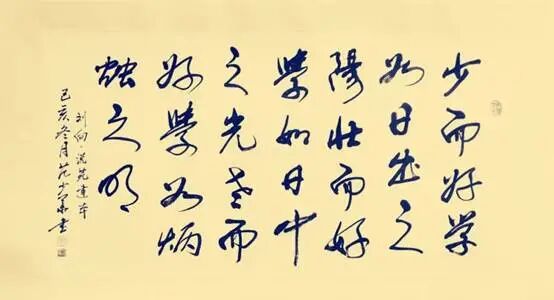 少而好学
如日出之
陽壮而好
學如日中
之光老而
好學如炳
烛之明
刘向·说苑建本
己亥冬月范书